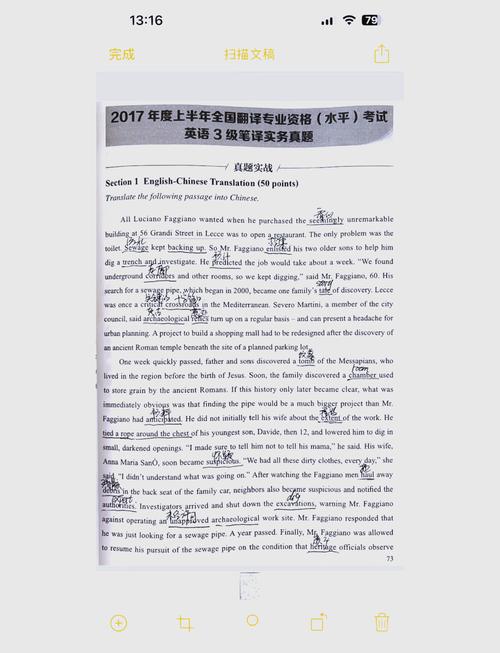 13:16
79
完成
扫描文稿
2017 年度上半年全国翻译专业资格（水平）考试
英语 3 级笔译实务真题
真题实战
Section 1 English-Chinese Translation (50 points)
Translate the following passage into Chinese.
All Luciano Faggiano wanted when he purchased the seemingly unremarkable
building at 56 Grandi Street in Lecce was to open a restaurant. The only problem was the
toilet. Sewage kept backing up. So Mr. Faggiano enlisted his two older sons to help him
dig a trench and investigate. He predicted the job would take about a week. “We found
underground corridors and other rooms, so we kept digging,” said Mr. Faggiano, 60. His
search for a sewage pipe, which began in 2000, became one family’s tale of discovery. Lecce
was once a critical crossroads in the Mediterranean. Severo Martini, a member of the city
council, said archaeological relics turn up on a regular basis – and can present a headache for
urban planning. A project to build a shopping mall had to be redesigned after the discovery of
an ancient Roman temple beneath the site of a planned parking lot.
One week quickly passed, father and sons discovered a tomb of the Messapians, who
room
lived in the region before the birth of Jesus. Soon, the family discovered a chamber used
to store grain by the ancient Romans. If this history only later became clear, what was
immediately obvious was that finding the pipe would be a much bigger project than Mr.
Faggiano had anticipated. He did not initially tell his wife about the extent of the work. He
tied a rope around the chest of his youngest son, Davide, then 12, and lowered him to dig in
small, darkened openings. “I made sure to tell him not to tell his mama,” he said. His wife,
Anna Maria SanÒ, soon became suspicious. “We had all these dirty clothes, every day,” she
said. “I didn’t understand what was going on.” After watching the Faggiano men haul away
debris in the back seat of the family car, neighbors also became suspicious and notified the
dig
authorities. Investigators arrived and shut down the excavations, warning Mr. Faggiano
against operating an unapproved archaeological work site. Mr. Faggiano responded that
he was just looking for a sewage pipe. A year passed. Finally, Mr. Faggiano was allowed
to resume his pursuit of the sewage pipe on the condition that heritage officials observe
73